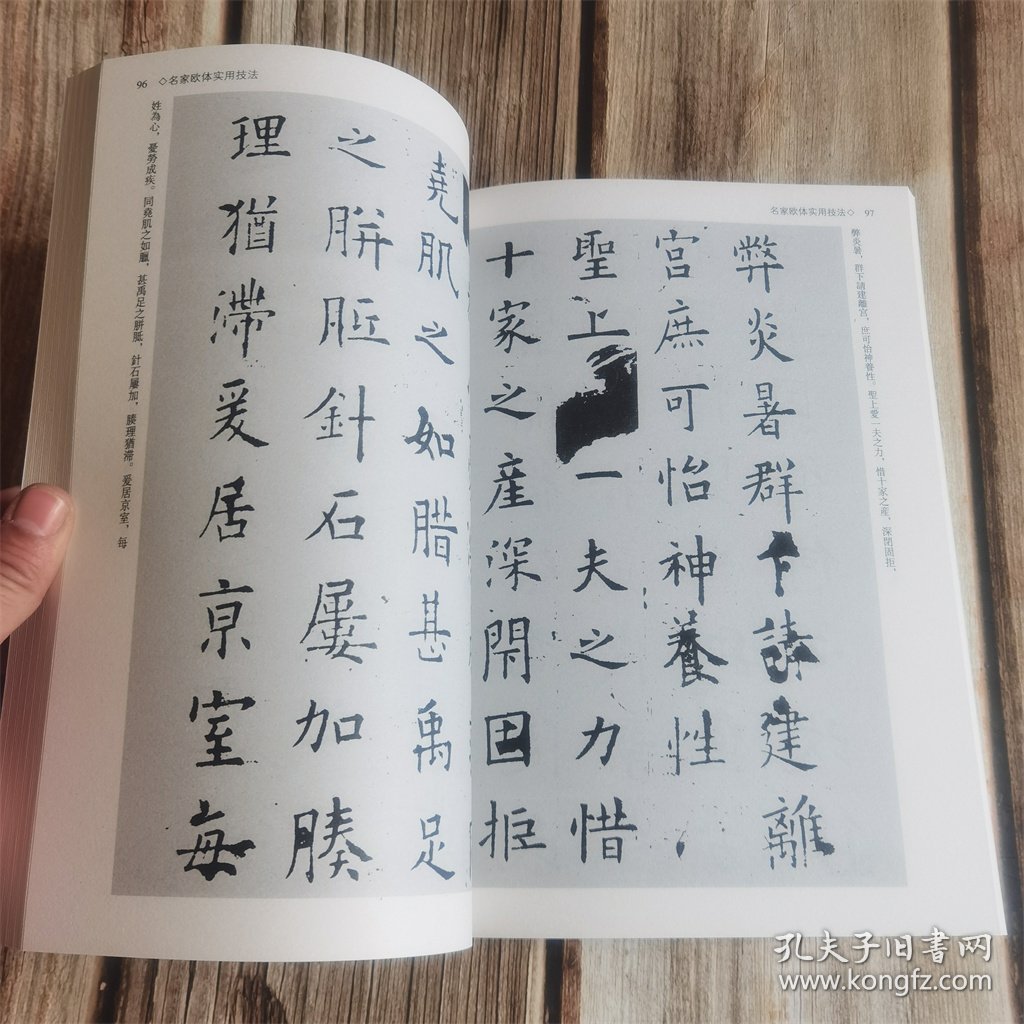 96 ◇名家欧体实用技法
堯肌之如腊甚禹足
之胼胝針石屢加腠
理猶滯爰居京室每
姓為心，憂勞成疾。同堯肌之如臘，甚禹足之胼胝，針石屢加，腠理猶滯。爰居京室，每
名家欧体实用技法◇ 97
弊炎暑，群下請建離宮，庶可怡神養性。聖上愛一夫之力，惜十家之産，深閉固拒，
弊炎暑群下請建離
宮庶可怡神養性
聖上一夫之力惜
十家之産深閇固拒
孔夫子旧书网
www.kongfz.com